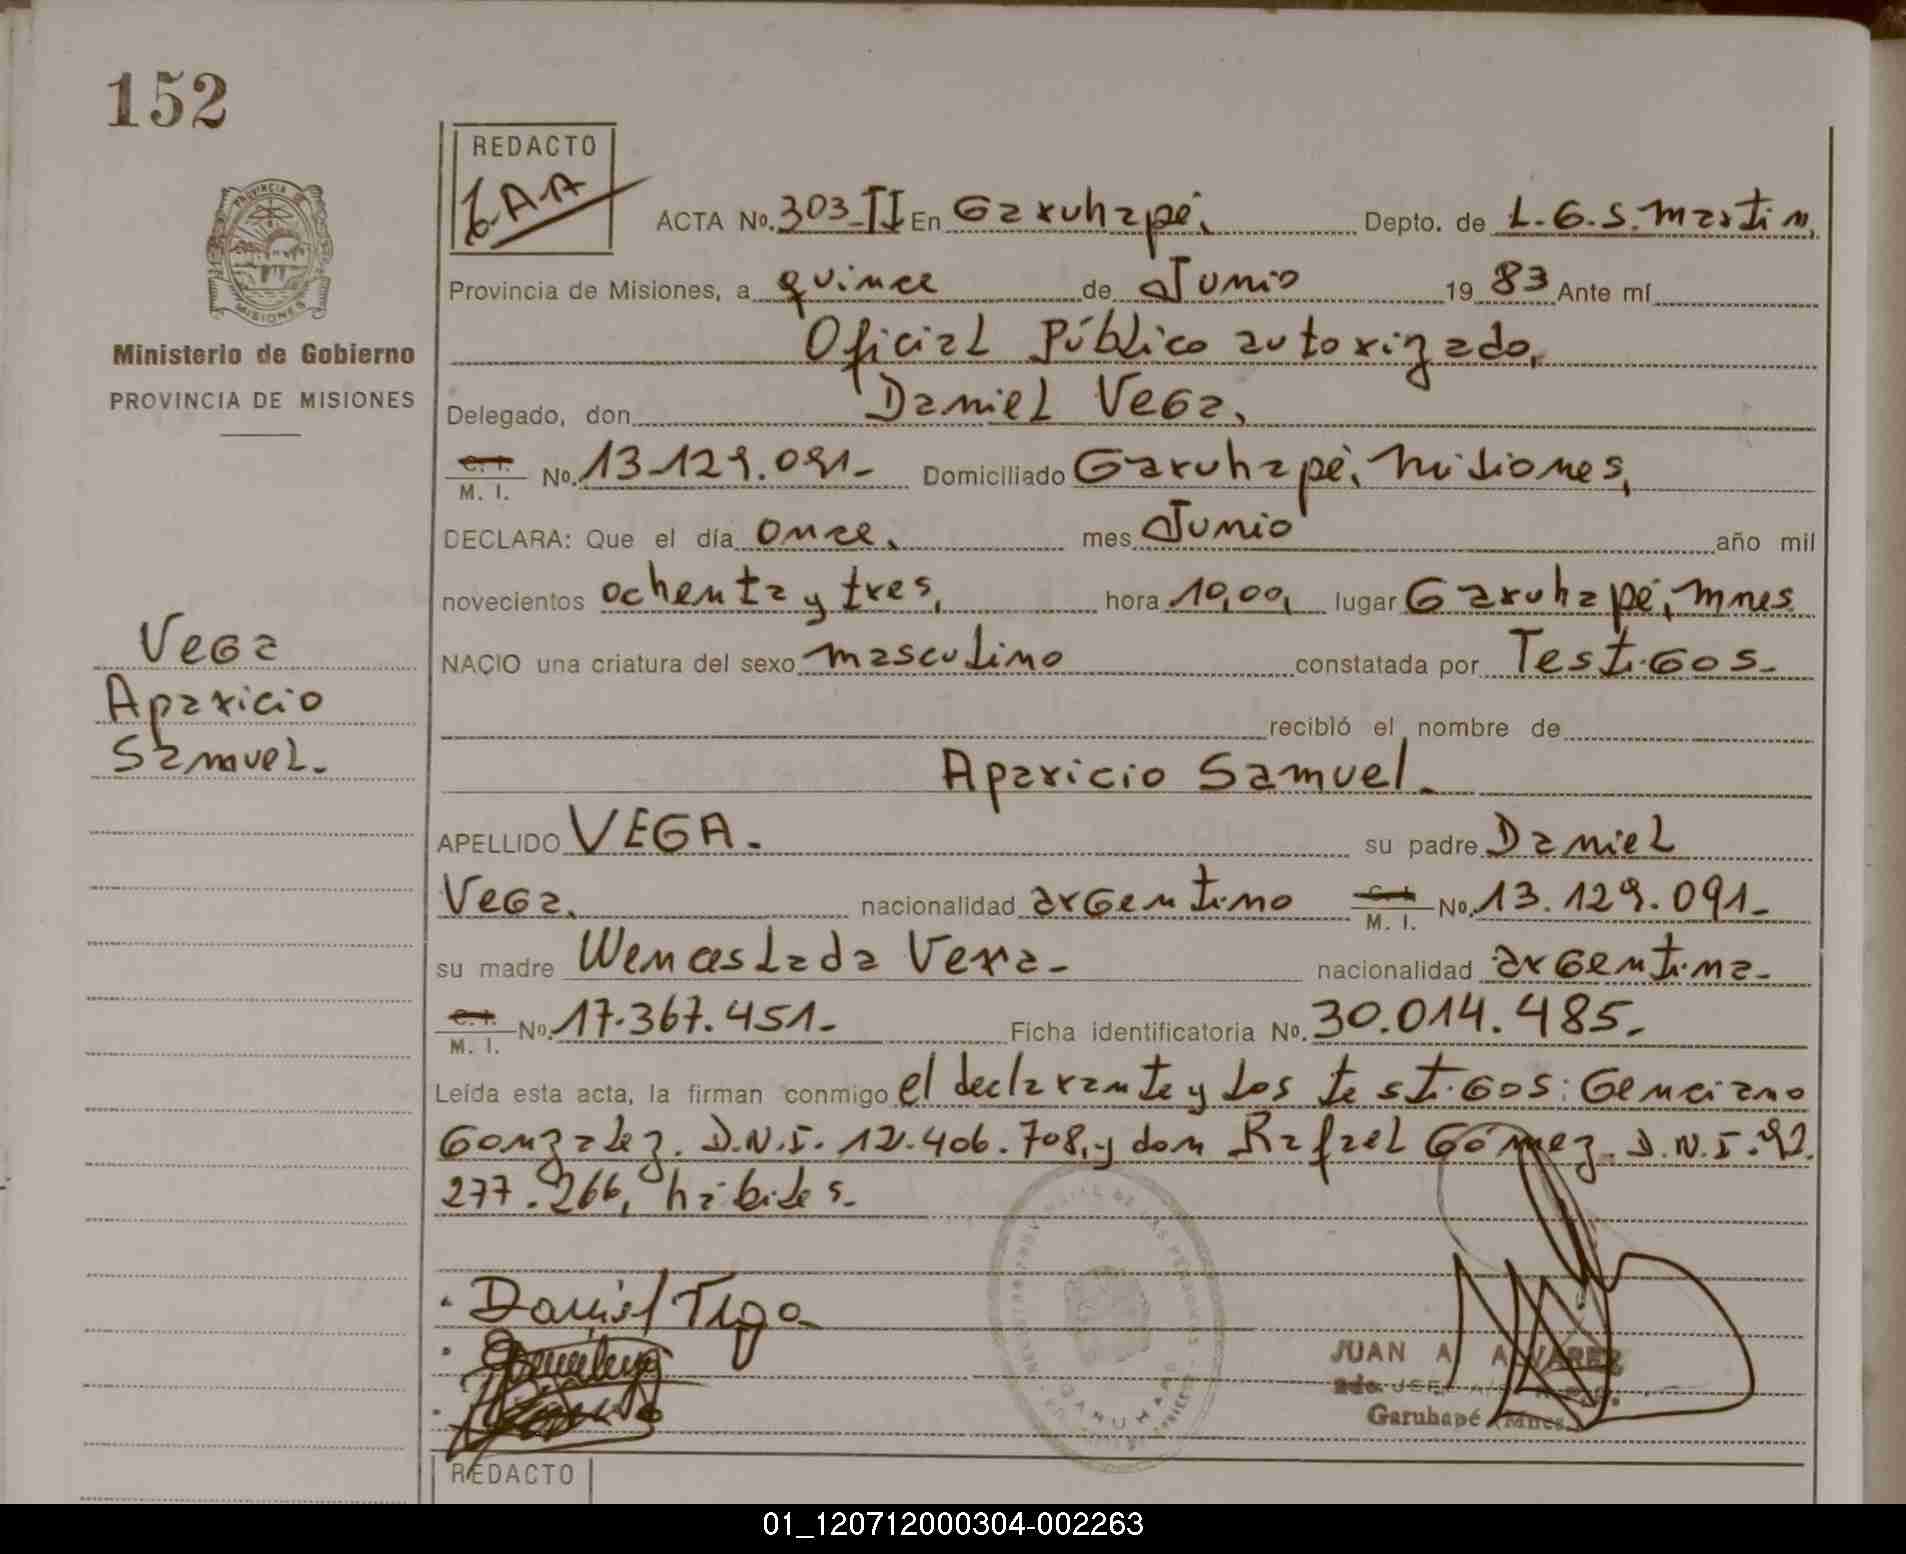 152
REDACTO
PROVINCIA DE
MISIONES
ACTA No. 303-II En Garuhapé, Depto. de L.G.S. Martin,
Provincia de Misiones, a quince de Junio 1983 Ante mí
Ministerio de Gobierno
PROVINCIA DE MISIONES
Oficial Público autorizado,
Delegado, don Daniel Vega,
C. I.
M. I. No. 13.129.091- Domiciliado Garuhapé, Misiones,
DECLARA: Que el día once, mes Junio año mil
novecientos ochenta y tres, hora 10,00, lugar Garuhapé, Mnes.
Vega
Aparicio
Samuel.-
NACIO una criatura del sexo masculino constatada por Testigos-
recibió el nombre de
Aparicio Samuel.
APELLIDO VEGA. su padre Daniel
Vega, nacionalidad argentino C. I.
M. I. No. 13.129.091-
su madre Wenceslada Vera- nacionalidad argentina-
C. I.
M. I. No. 17.367.451- Ficha identificatoria No. 30.014.485-
Leída esta acta, la firman conmigo el declarante y los testigos: Genciano
Gonzalez. D.N.I. 12.406.708, y don Rafael Gómez. D.N.I. 92.
277.266, hábiles.-
Daniel Vega
JUAN A. ALVAREZ
Garuhapé (Mnes.)
GARUHAPE
REDACTO
01_120712000304-002263